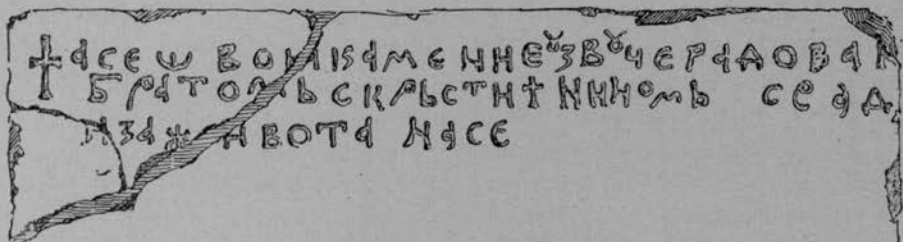 † АСЕ Ѡ ВОИ КАМЕНИЕ ꙊЗВꙊЧЕ РАДОВАН
БРАТОМЬ СКРЬСТИꙗНИНОМЬ СРАД
ИЗА ЖИВОТА НАСЕ